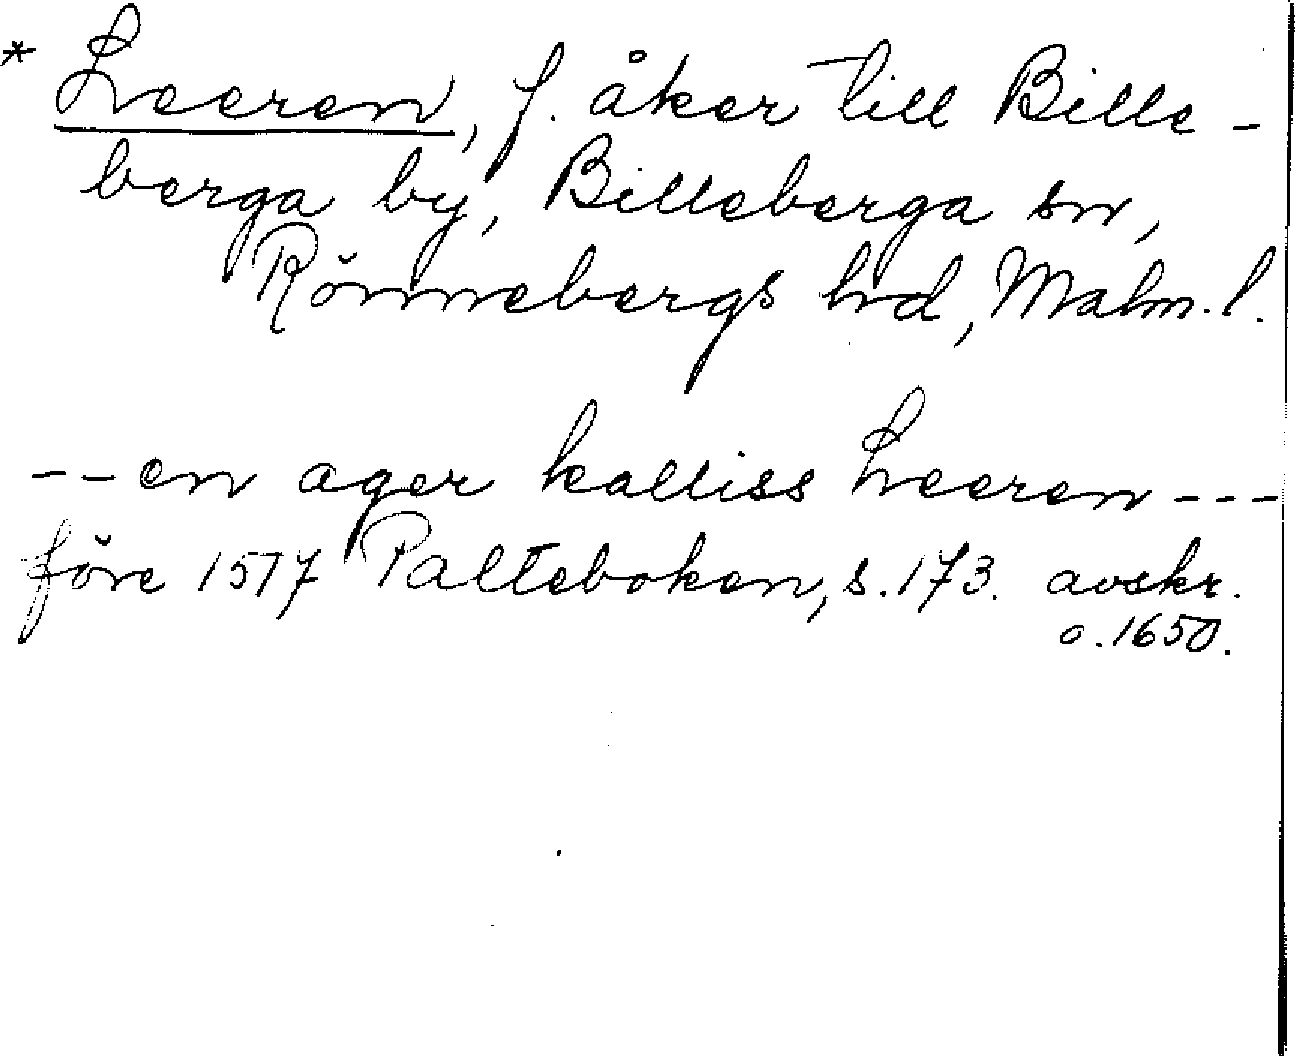 * Leeren, f. åker till Bille-
berga by, Billeberga sn,
Rönnebergs hd, Malm. l.
--en ager kalliss Leeren---
före 1517 Palteboken, s. 173. avskr.
o. 1650.